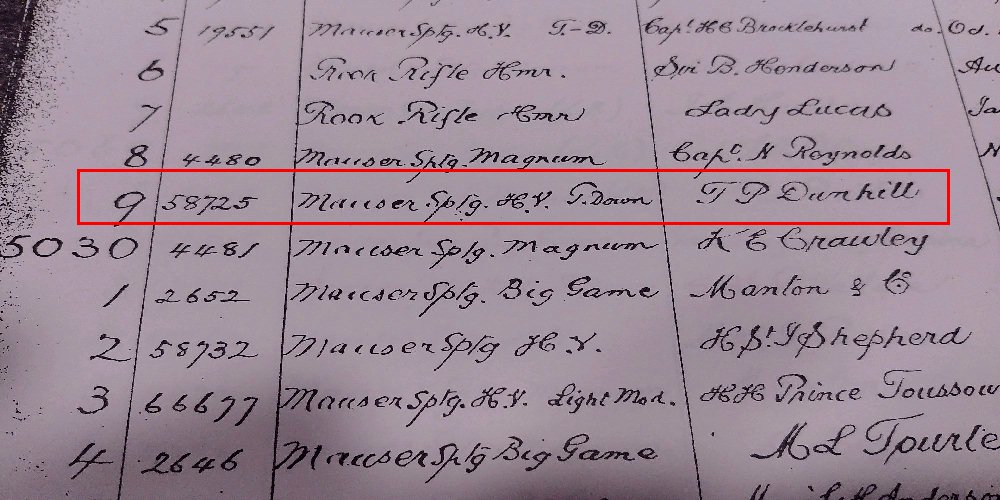 5 19551 Mauser Sptg. H.V. T-D. Capt. H C Brocklehurst do. Oct.
6 Rook Rifle Hmr. Sir B. Henderson Au
7 Rook Rifle Hmr Lady Lucas Ja
8 4480 Mauser Sptg. Magnum Capt. N Reynolds N
9 58725 Mauser Sptg. H.V. T.Down T P Dunhill
5030 4481 Mauser Sptg. Magnum K E Crawley
1 2652 Mauser Sptg. Big Game Manton & Co
2 58732 Mauser Sptg H.V. H St. J Shepherd
3 66677 Mauser Sptg. H.V. Light Mod. HH Prince Toussou
4 2646 Mauser Sptg Big Game M L Tourle